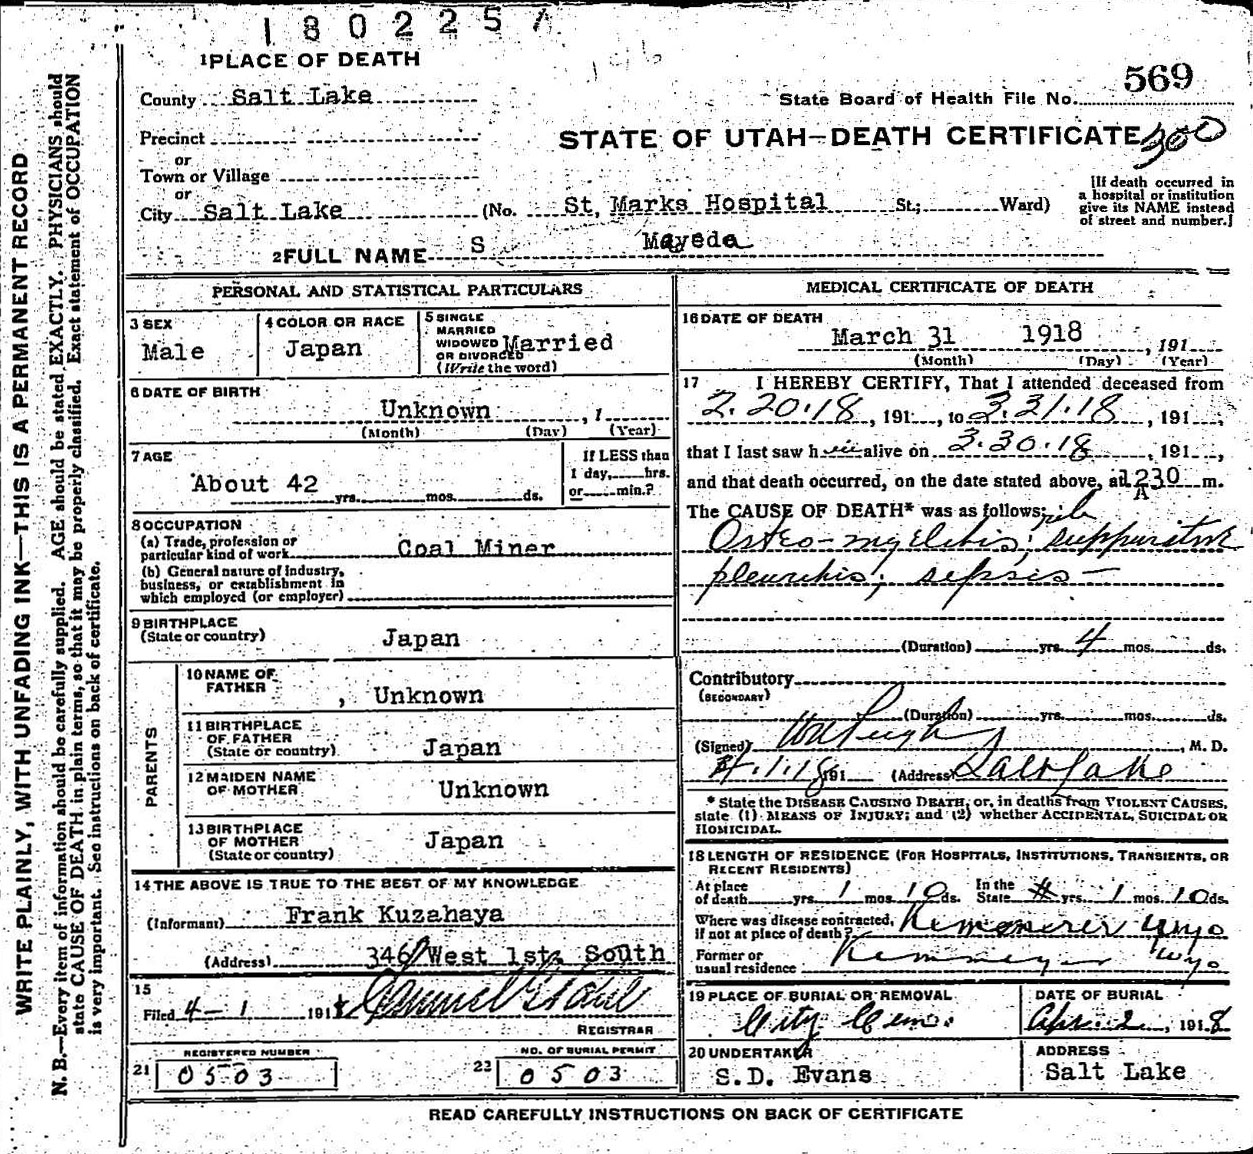 1802257
1 PLACE OF DEATH
569
County Salt Lake
State Board of Health File No.
Precinct
STATE OF UTAH—DEATH CERTIFICATE 300
or
Town or Village
or
City Salt Lake (No. St. Marks Hospital St.; Ward)
[If death occurred in
a hospital or institution
give its NAME instead
of street and number.]
2 FULL NAME S Mayeda
PERSONAL AND STATISTICAL PARTICULARS
3 SEX
Male
4 COLOR OR RACE
Japan
5 SINGLE
MARRIED
WIDOWED
OR DIVORCED
(Write the word)
Married
6 DATE OF BIRTH
Unknown , 1
(Month) (Day) (Year)
7 AGE
About 42
yrs. mos. ds.
If LESS than
1 day, hrs.
or min.?
8 OCCUPATION
(a) Trade, profession or
particular kind of work Coal Miner
(b) General nature of industry,
business, or establishment in
which employed (or employer)
9 BIRTHPLACE
(State or country) Japan
PARENTS
10 NAME OF
FATHER , Unknown
11 BIRTHPLACE
OF FATHER
(State or country) Japan
12 MAIDEN NAME
OF MOTHER Unknown
13 BIRTHPLACE
OF MOTHER
(State or country) Japan
14 THE ABOVE IS TRUE TO THE BEST OF MY KNOWLEDGE
(Informant) Frank Kuzahaya
(Address) 346 West 1st. South
15
Filed 4-1 1918
REGISTRAR
21 REGISTERED NUMBER
0503
22 NO. OF BURIAL PERMIT
0503
MEDICAL CERTIFICATE OF DEATH
16 DATE OF DEATH
March 31 1918 , 191
(Month) (Day) (Year)
17 I HEREBY CERTIFY, That I attended deceased from
2.20.18 , 191 , to 3.31.18 , 191 ,
that I last saw him alive on 3.30.18 , 191 ,
and that death occurred, on the date stated above, at 1230 A m.
The CAUSE OF DEATH* was as follows:
Osteo-myelitis, rib; suppurative
pleuritis; sepsis—
(Duration) yrs. 4 mos. ds.
Contributory
(SECONDARY)
(Duration) yrs. mos. ds.
(Signed) , M. D.
4.1.18 191 (Address) Salt Lake
* State the DISEASE CAUSING DEATH, or, in deaths from VIOLENT CAUSES,
state (1) MEANS OF INJURY; and (2) whether ACCIDENTAL, SUICIDAL OR
HOMICIDAL.
18 LENGTH OF RESIDENCE (FOR HOSPITALS, INSTITUTIONS, TRANSIENTS, OR
RECENT RESIDENTS)
At place
of death yrs. 1 mos. 10 ds.
In the
State yrs. 1 mos. 10 ds.
Where was disease contracted,
if not at place of death? Kemmerer Wyo
Former or
usual residence Kemmerer Wyo
19 PLACE OF BURIAL OR REMOVAL
City Cem.
DATE OF BURIAL
Apr. 2 , 1918
20 UNDERTAKER
S.D. Evans
ADDRESS
Salt Lake
READ CAREFULLY INSTRUCTIONS ON BACK OF CERTIFICATE
WRITE PLAINLY, WITH UNFADING INK—THIS IS A PERMANENT RECORD
N. B.—Every item of information should be carefully supplied. AGE should be stated EXACTLY. PHYSICIANS should
state CAUSE OF DEATH in plain terms, so that it may be properly classified. Exact statement of OCCUPATION
is very important. See instructions on back of certificate.